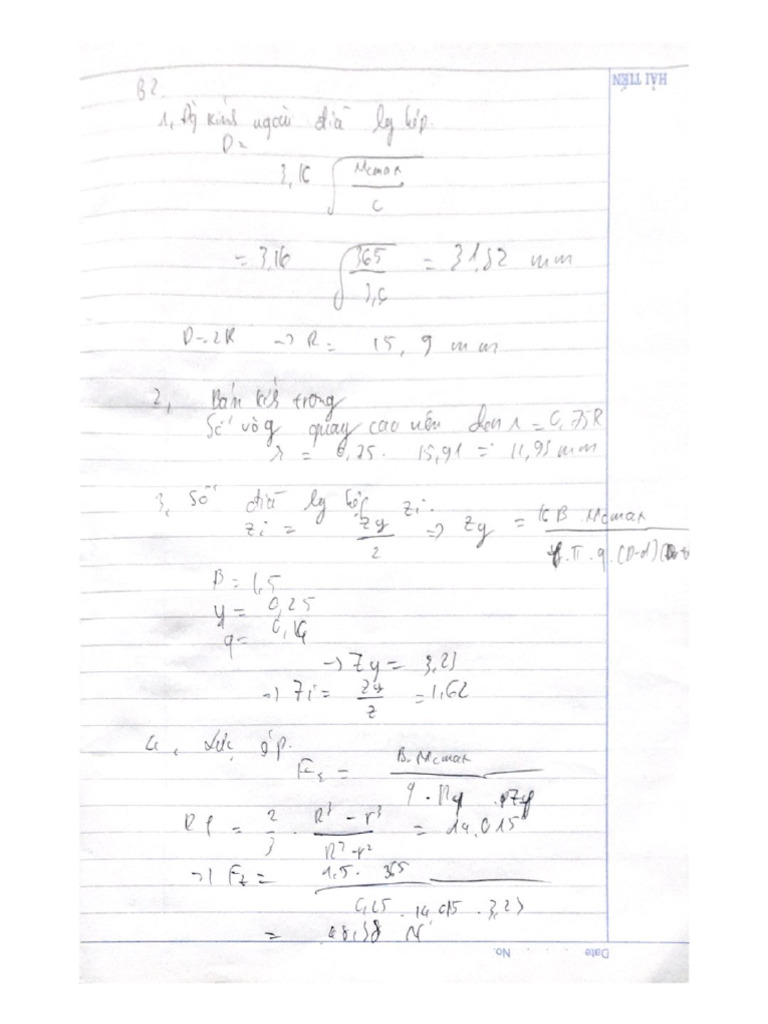 HẢI TIẾN
B2.
1, Đg kính ngoài đĩa ly hợp.
D =
3,16 √ Mcmax / C
= 3,16 √ 365 / 3,6 = 31,82 mm
D = 2R → R = 15,9 mm
2, Bán kính trong
Số vòg quay cao nên chọn r = 0,75R
r = 0,75 . 15,91 = 11,93 mm
3, Số đĩa ly hợp zi.
zi = Zy / 2 ⇒ Zy = 16 B . Mcmax / φ . π . q . (D-d)(D+
B = 1,5
φ = 0,25
q =
→ Zy = 3,23
→ Zi = Zy / 2 = 1,62
4, Lực ép.
FΣ = B. Mcmax / φ . Rρ . Zy
Rρ = 2/3 . R³ - r³ / R² - r² = 14,015
→ FΣ = 1,5 . 365 / 0,25 . 14,015 . 3,23
= 48,38 N
Date . . . . . No.